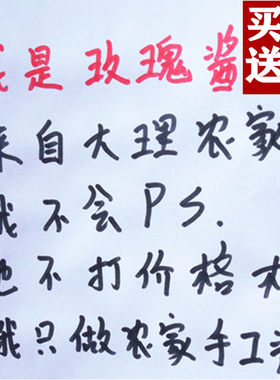 买
送
我是玫瑰酱
来自大理农家
我不会PS.
也不打价格
我只做农家手工